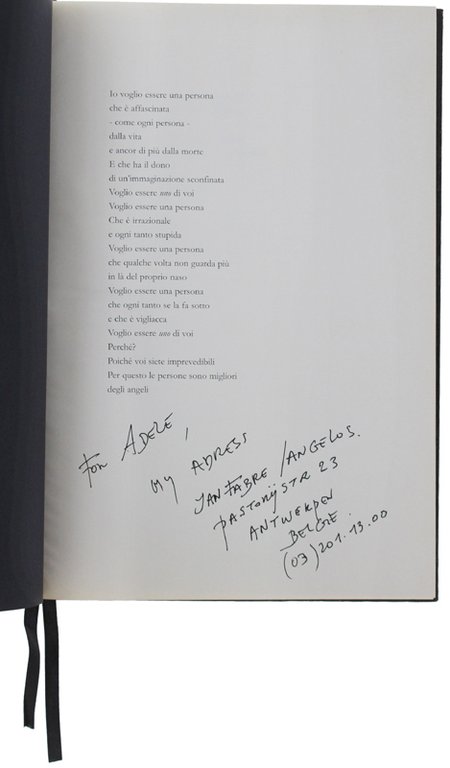 Io voglio essere una persona
che è affascinata
- come ogni persona -
dalla vita
e ancor di più dalla morte
E che ha il dono
di un'immaginazione sconfinata
Voglio essere uno di voi
Voglio essere una persona
Che è irrazionale
e ogni tanto stupida
Voglio essere una persona
che qualche volta non guarda più
in là del proprio naso
Voglio essere una persona
che ogni tanto se la fa sotto
e che è vigliacca
Voglio essere uno di voi
Perché?
Poiché voi siete imprevedibili
Per questo le persone sono migliori
degli angeli
For ADELE,
MY ADRESS
JAN FABRE / ANGELOS.
PASTORIJSTR 23
ANTWERPEN
BELGIE.
(03) 201.13.00